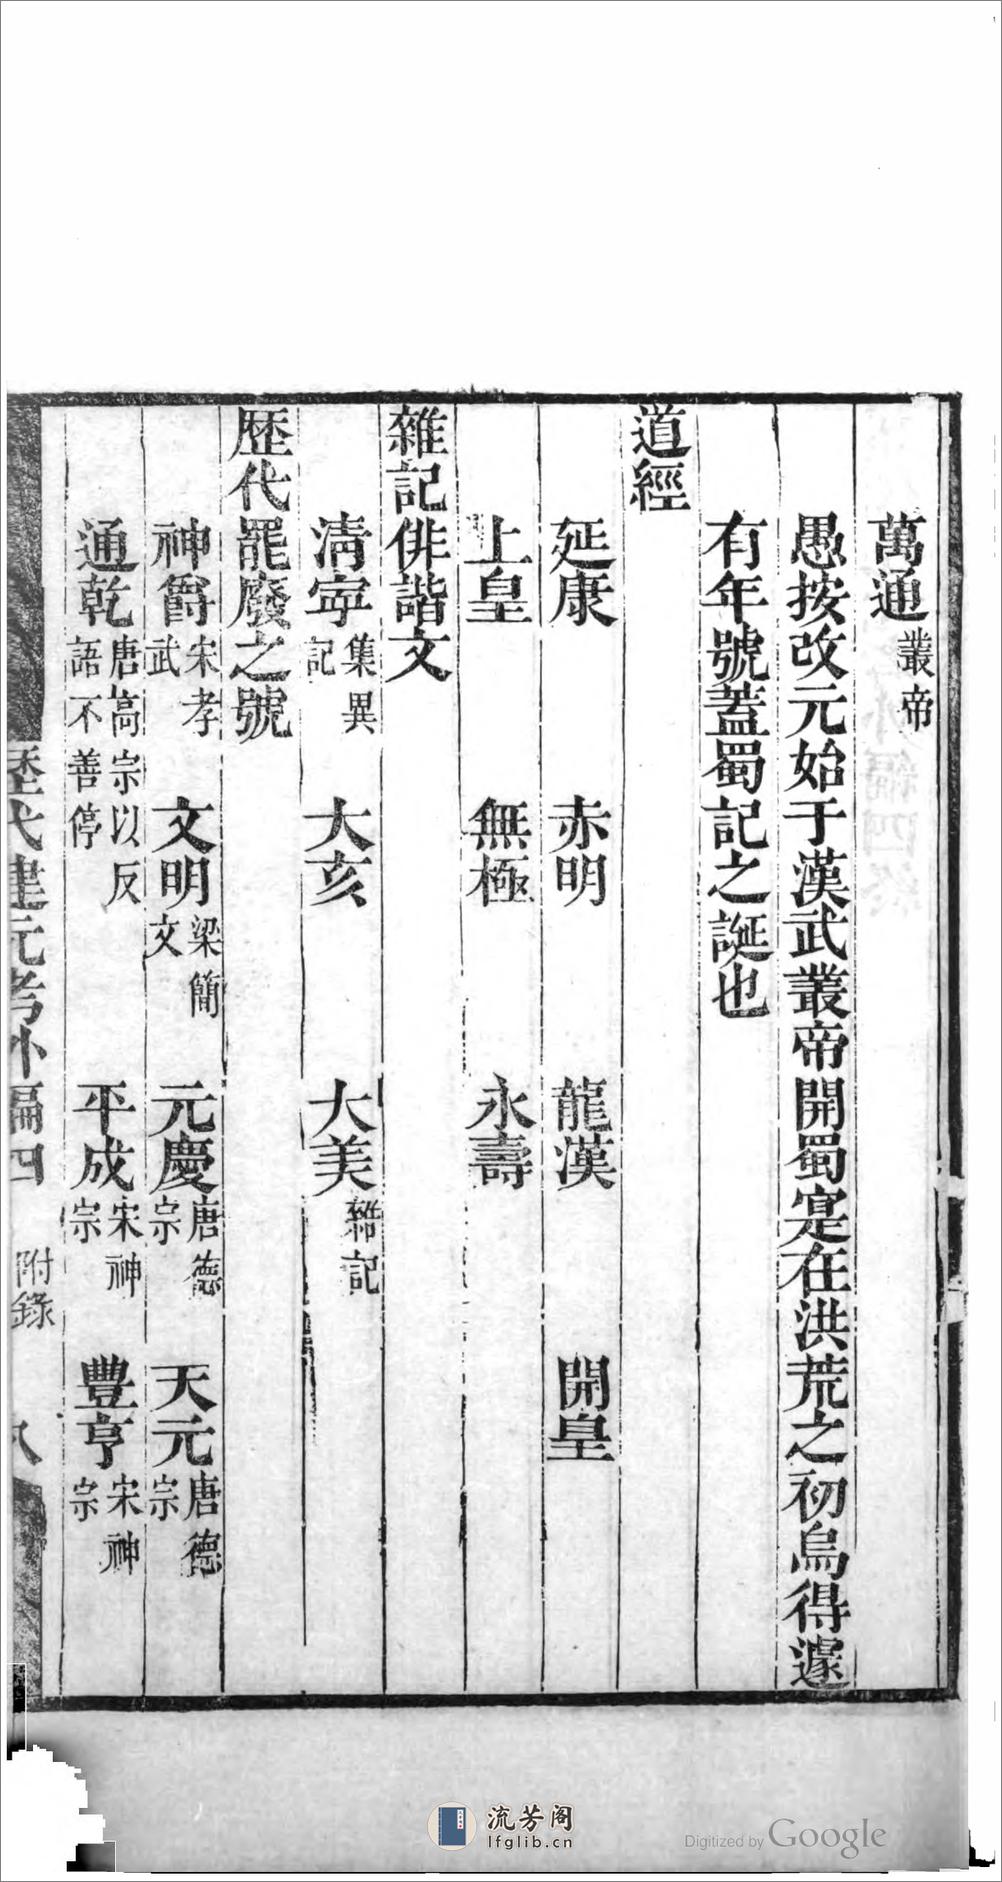 萬通叢帝
愚按改元始于漢武叢帝開蜀寔在洪荒之初烏得遽
有年號蓋蜀記之誕也
道經
延康 赤明 龍漢 開皇
上皇 無極 永壽
雜記俳諧文
淸寜集異記 大亥 大美雜記
歷代罷廢之號
神爵宋孝武 文明梁簡文 元慶唐德宗 天元唐德宗
通乾唐高宗以反語不善停 平成宋神宗 豐亨宋神宗
歷代建元考外編四 附錄 八
流芳阁
lfglib.cn
Digitized by Google